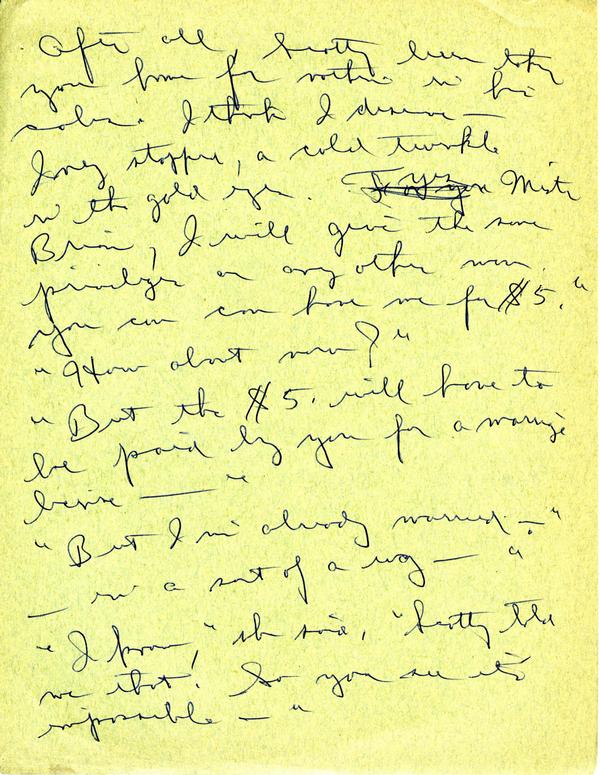 After all, Scotty been taking
you home for nothin in his
sales. I think I deserve —
Joney stopped, a cold twinkle
in the gold eyes. yes Mister
Brian, I will give the same
privileges as any other man.
you can can have me for $5."
"How about now?"
"But the $5. will have to
be paid by you for a marriage
license — "
"But I'm already married — "
— in a sort of a way — "
"I know," she said, "Scotty told
me that. So you see it's
impossible — "